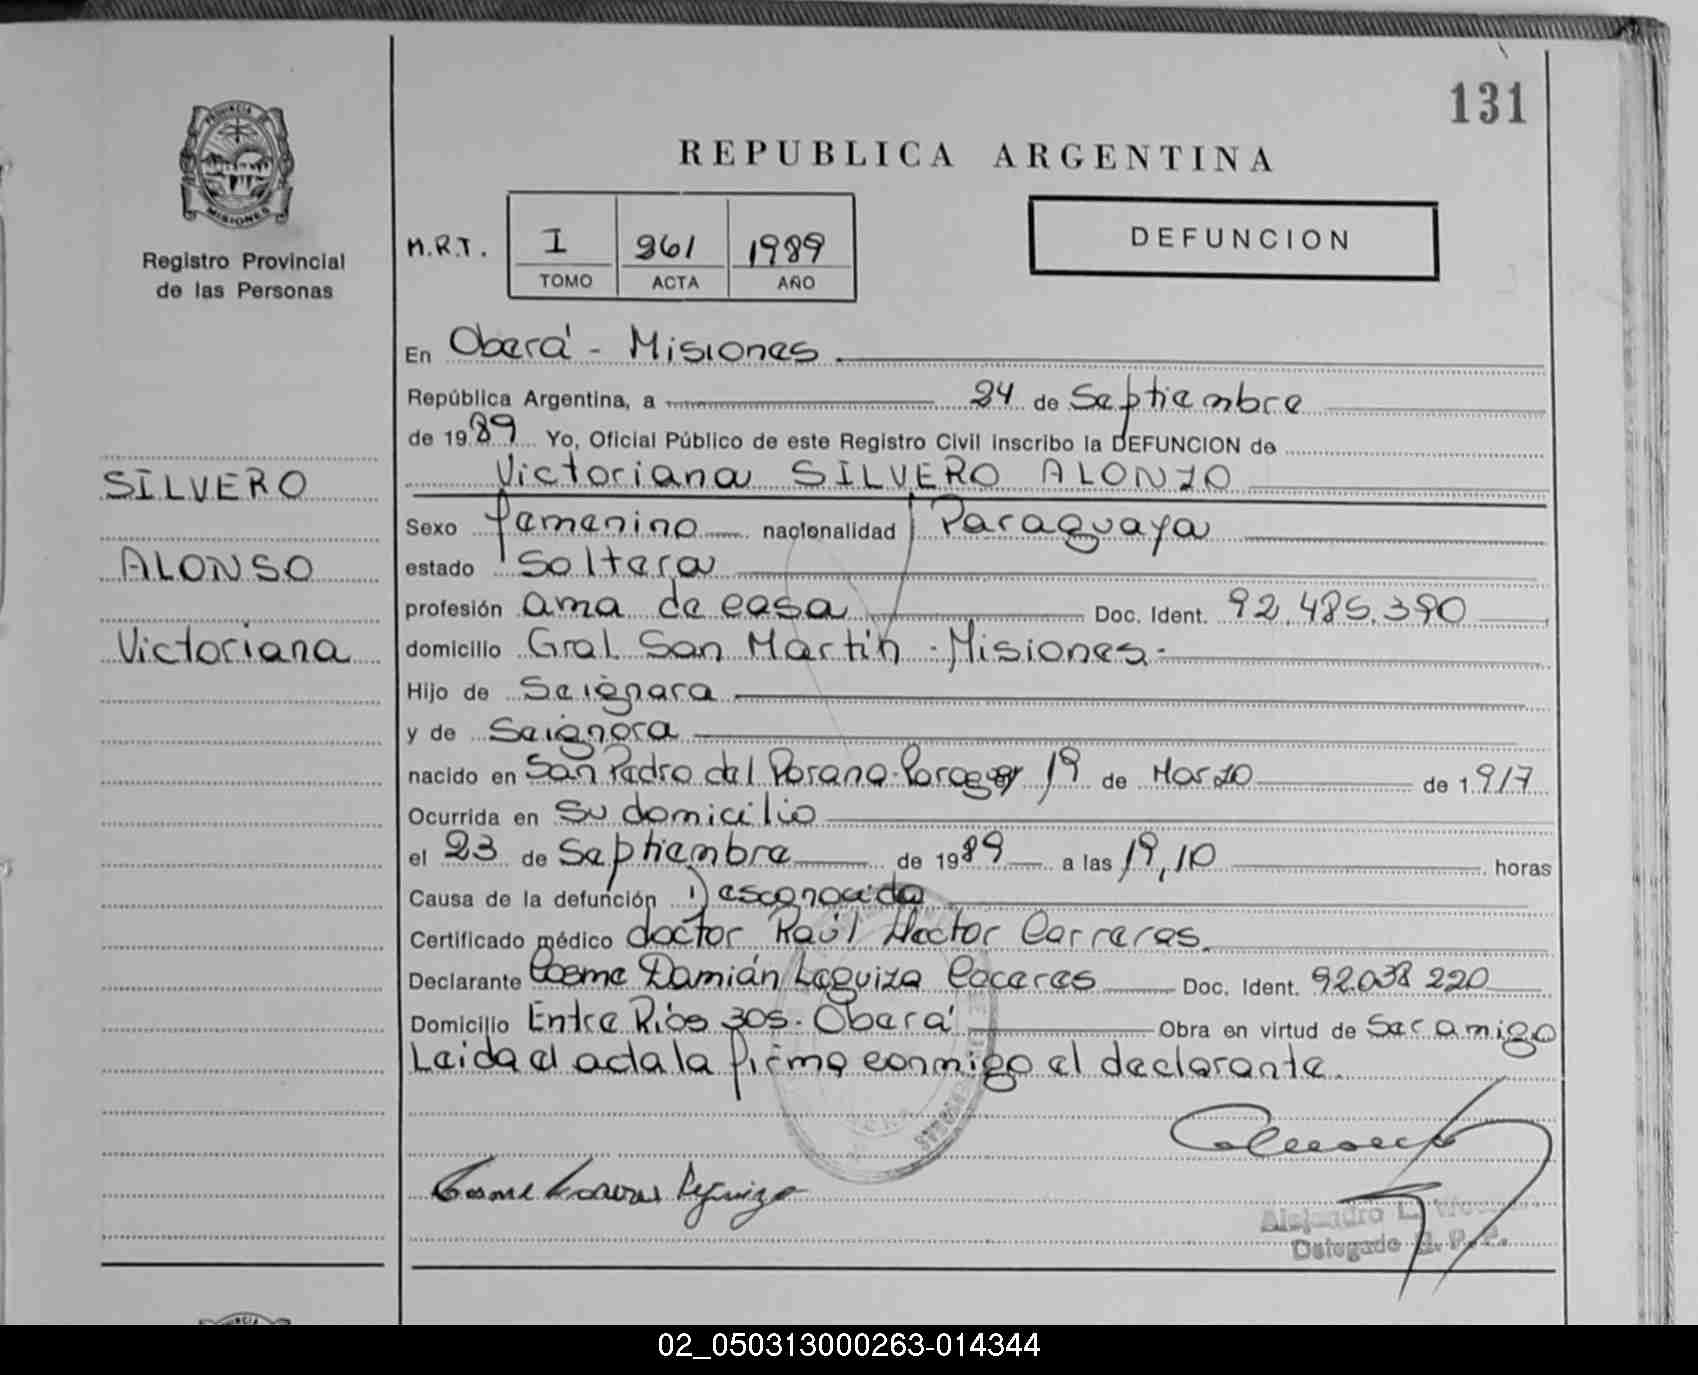 131
PROVINCIA DE
MISIONES
Registro Provincial
de las Personas
REPUBLICA ARGENTINA
M.R.T.
I 261 1989
TOMO ACTA AÑO
DEFUNCION
SILVERO
ALONSO
Victoriana
En Oberá - Misiones
República Argentina, a 24 de Septiembre
de 1989 Yo, Oficial Público de este Registro Civil inscribo la DEFUNCION de
Victoriana SILVERO ALONZO
Sexo femenino nacionalidad Paraguaya
estado Soltera
profesión ama de casa Doc. Ident. 92.485.390
domicilio Gral San Martín - Misiones -
Hijo de Seignara
y de Seignora
nacido en San Pedro del Parana - 19 de Marzo de 1917
Ocurrida en su domicilio
el 23 de Septiembre de 1989 a las 19,10 horas
Causa de la defunción Desconocida
Certificado médico doctor Raúl Hector Carreras
Declarante Cosme Damián Leguiza Caceres Doc. Ident. 92.038 220
Domicilio Entre Ríos 305 - Oberá Obra en virtud de Ser amigo
Leida el acta la firma conmigo el declarante.
Cosme Leguiza
Alejandro L.
Delegado R. P. P.
02_050313000263-014344